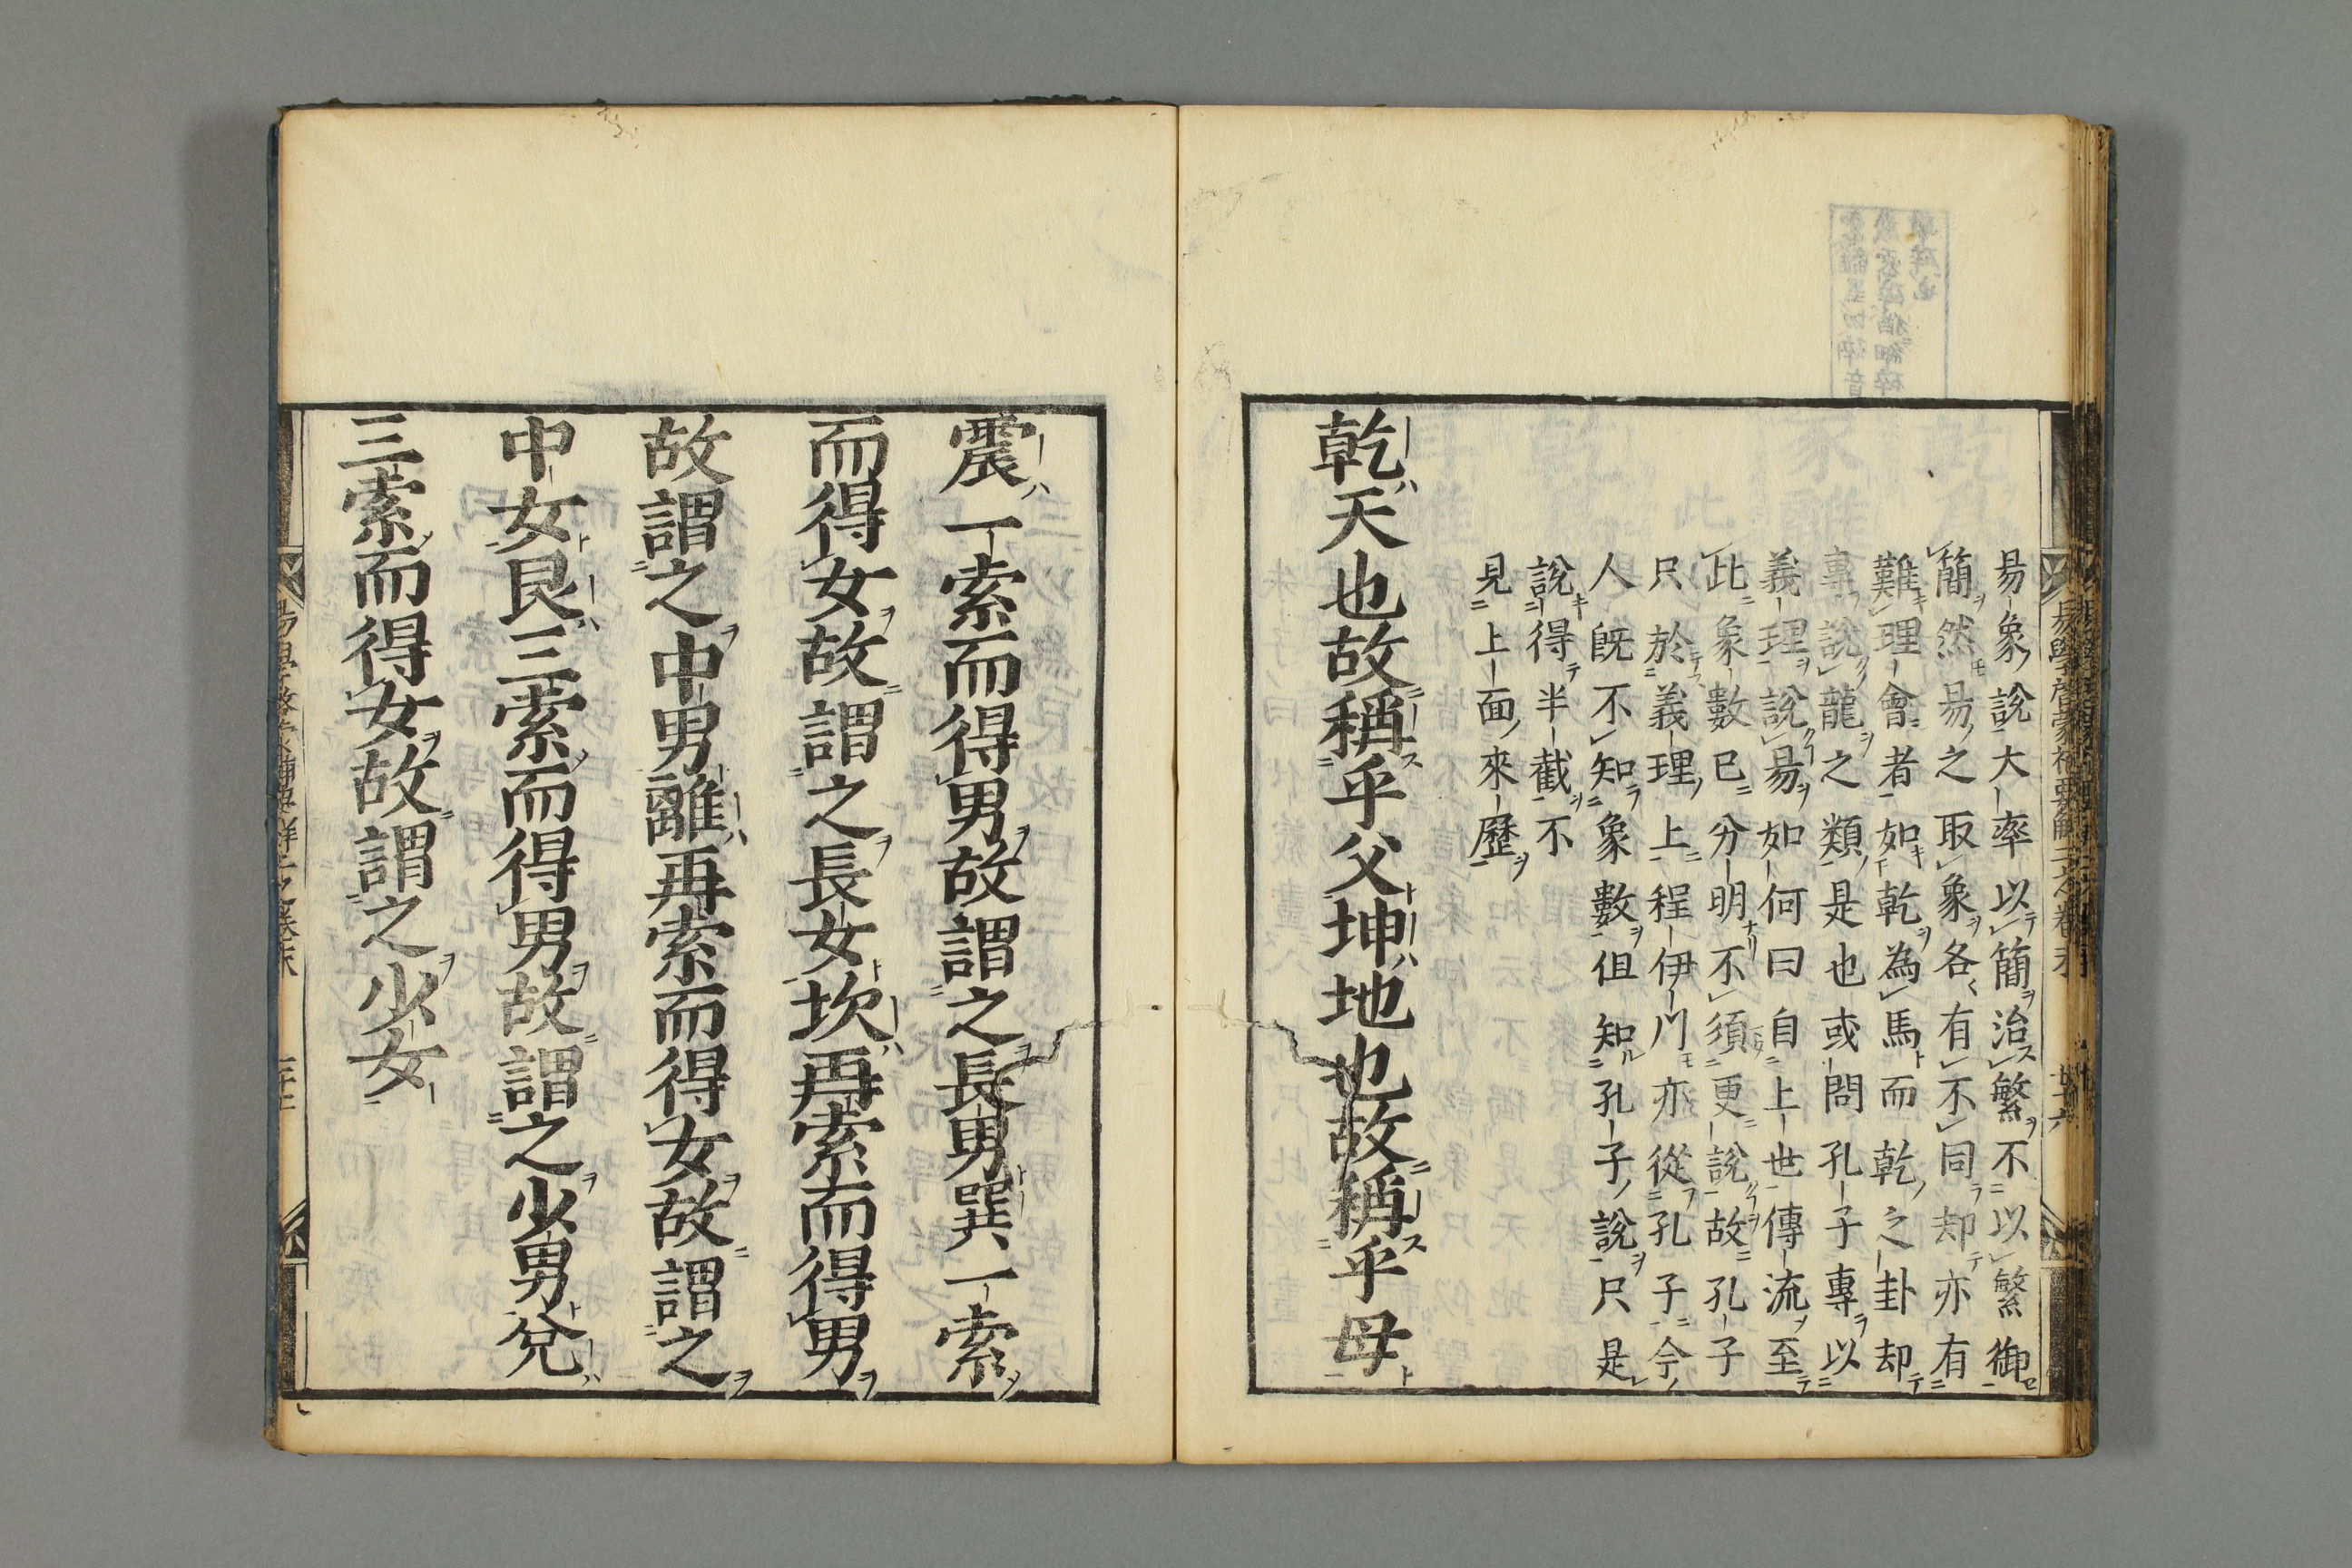 易象說大率以簡治繁不以繁御
簡然易之取象各有不同却亦有
難理會者如乾為馬而乾之卦却
專說龍之類是也或問孔子專以
義理說易如何曰自上世傳流至
此象數已分明不須更說故孔子
只於義理上程伊川亦從孔子今
人旣不知象數但知孔子說只是
說得半截不
見上面來歷
乾天也故稱乎父坤地也故稱乎母
震一索而得男故謂之長男巽一索
而得女故謂之長女坎再索而得男
故謂之中男離再索而得女故謂之
中女艮三索而得男故謂之少男兌
三索而得女故謂之少女